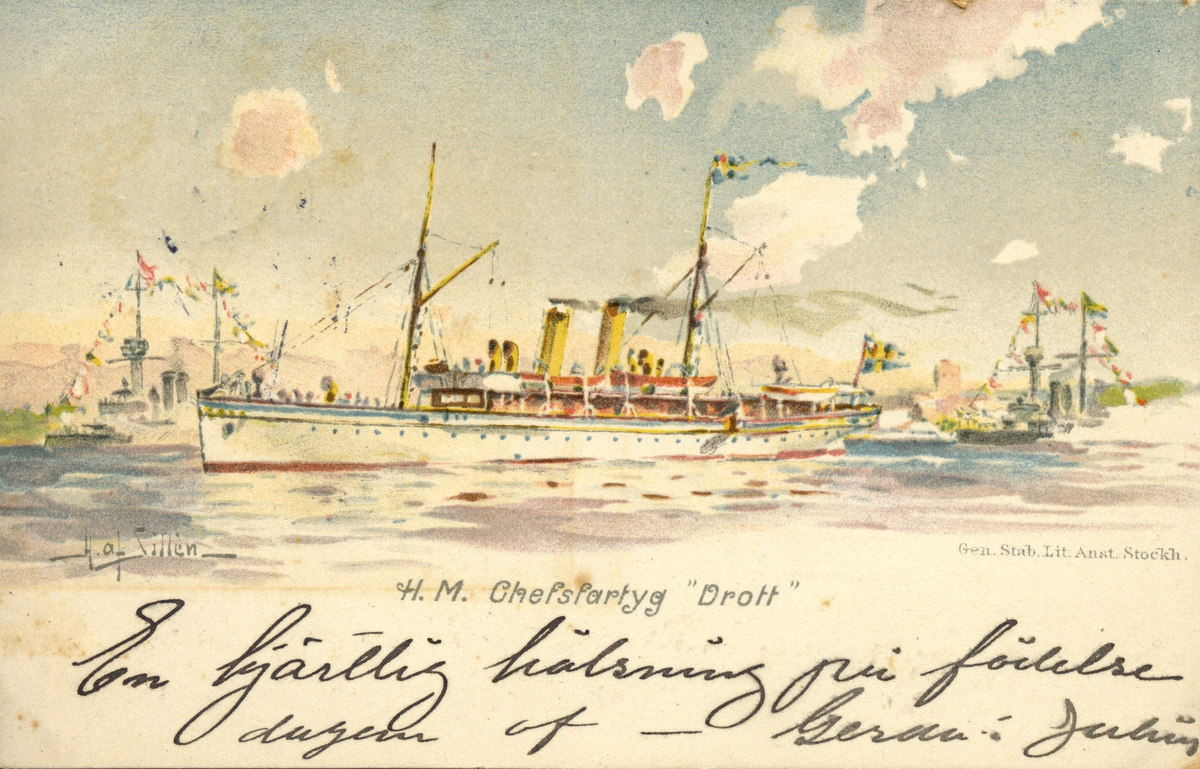 H. af Sillén
Gen. Stab. Lit. Anst. Stockh.
H. M. Chefsfartyg "Drott"
En hjärtlig hälsning på födelse
dagen af — Gerda : Julius